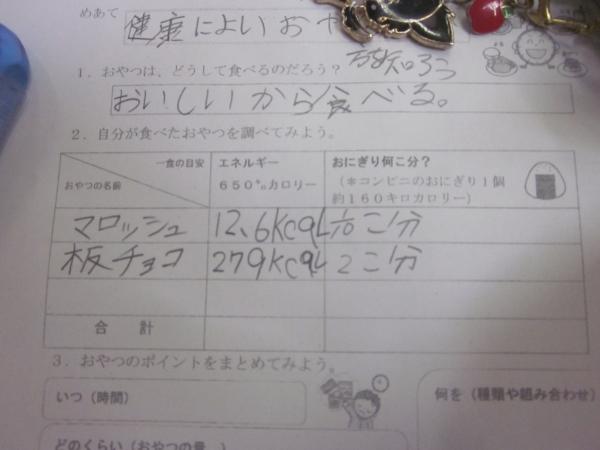 めあて 健康によいおや
方を知ろう
1．おやつは、どうして食べるのだろう？
おいしいから食べる。
2．自分が食べたおやつを調べてみよう。
一食の目安 エネルギー おにぎり何こ分？
おやつの名前 650㌔カロリー （＊コンビニのおにぎり1個
約160キロカロリー）
マロッシュ 12.6kcal 1/10こ分
板チョコ 279kcal 2こ分
合計
3．おやつのポイントをまとめてみよう。
いつ（時間） 何を（種類や組み合わせ）
どのくらい（おやつの量